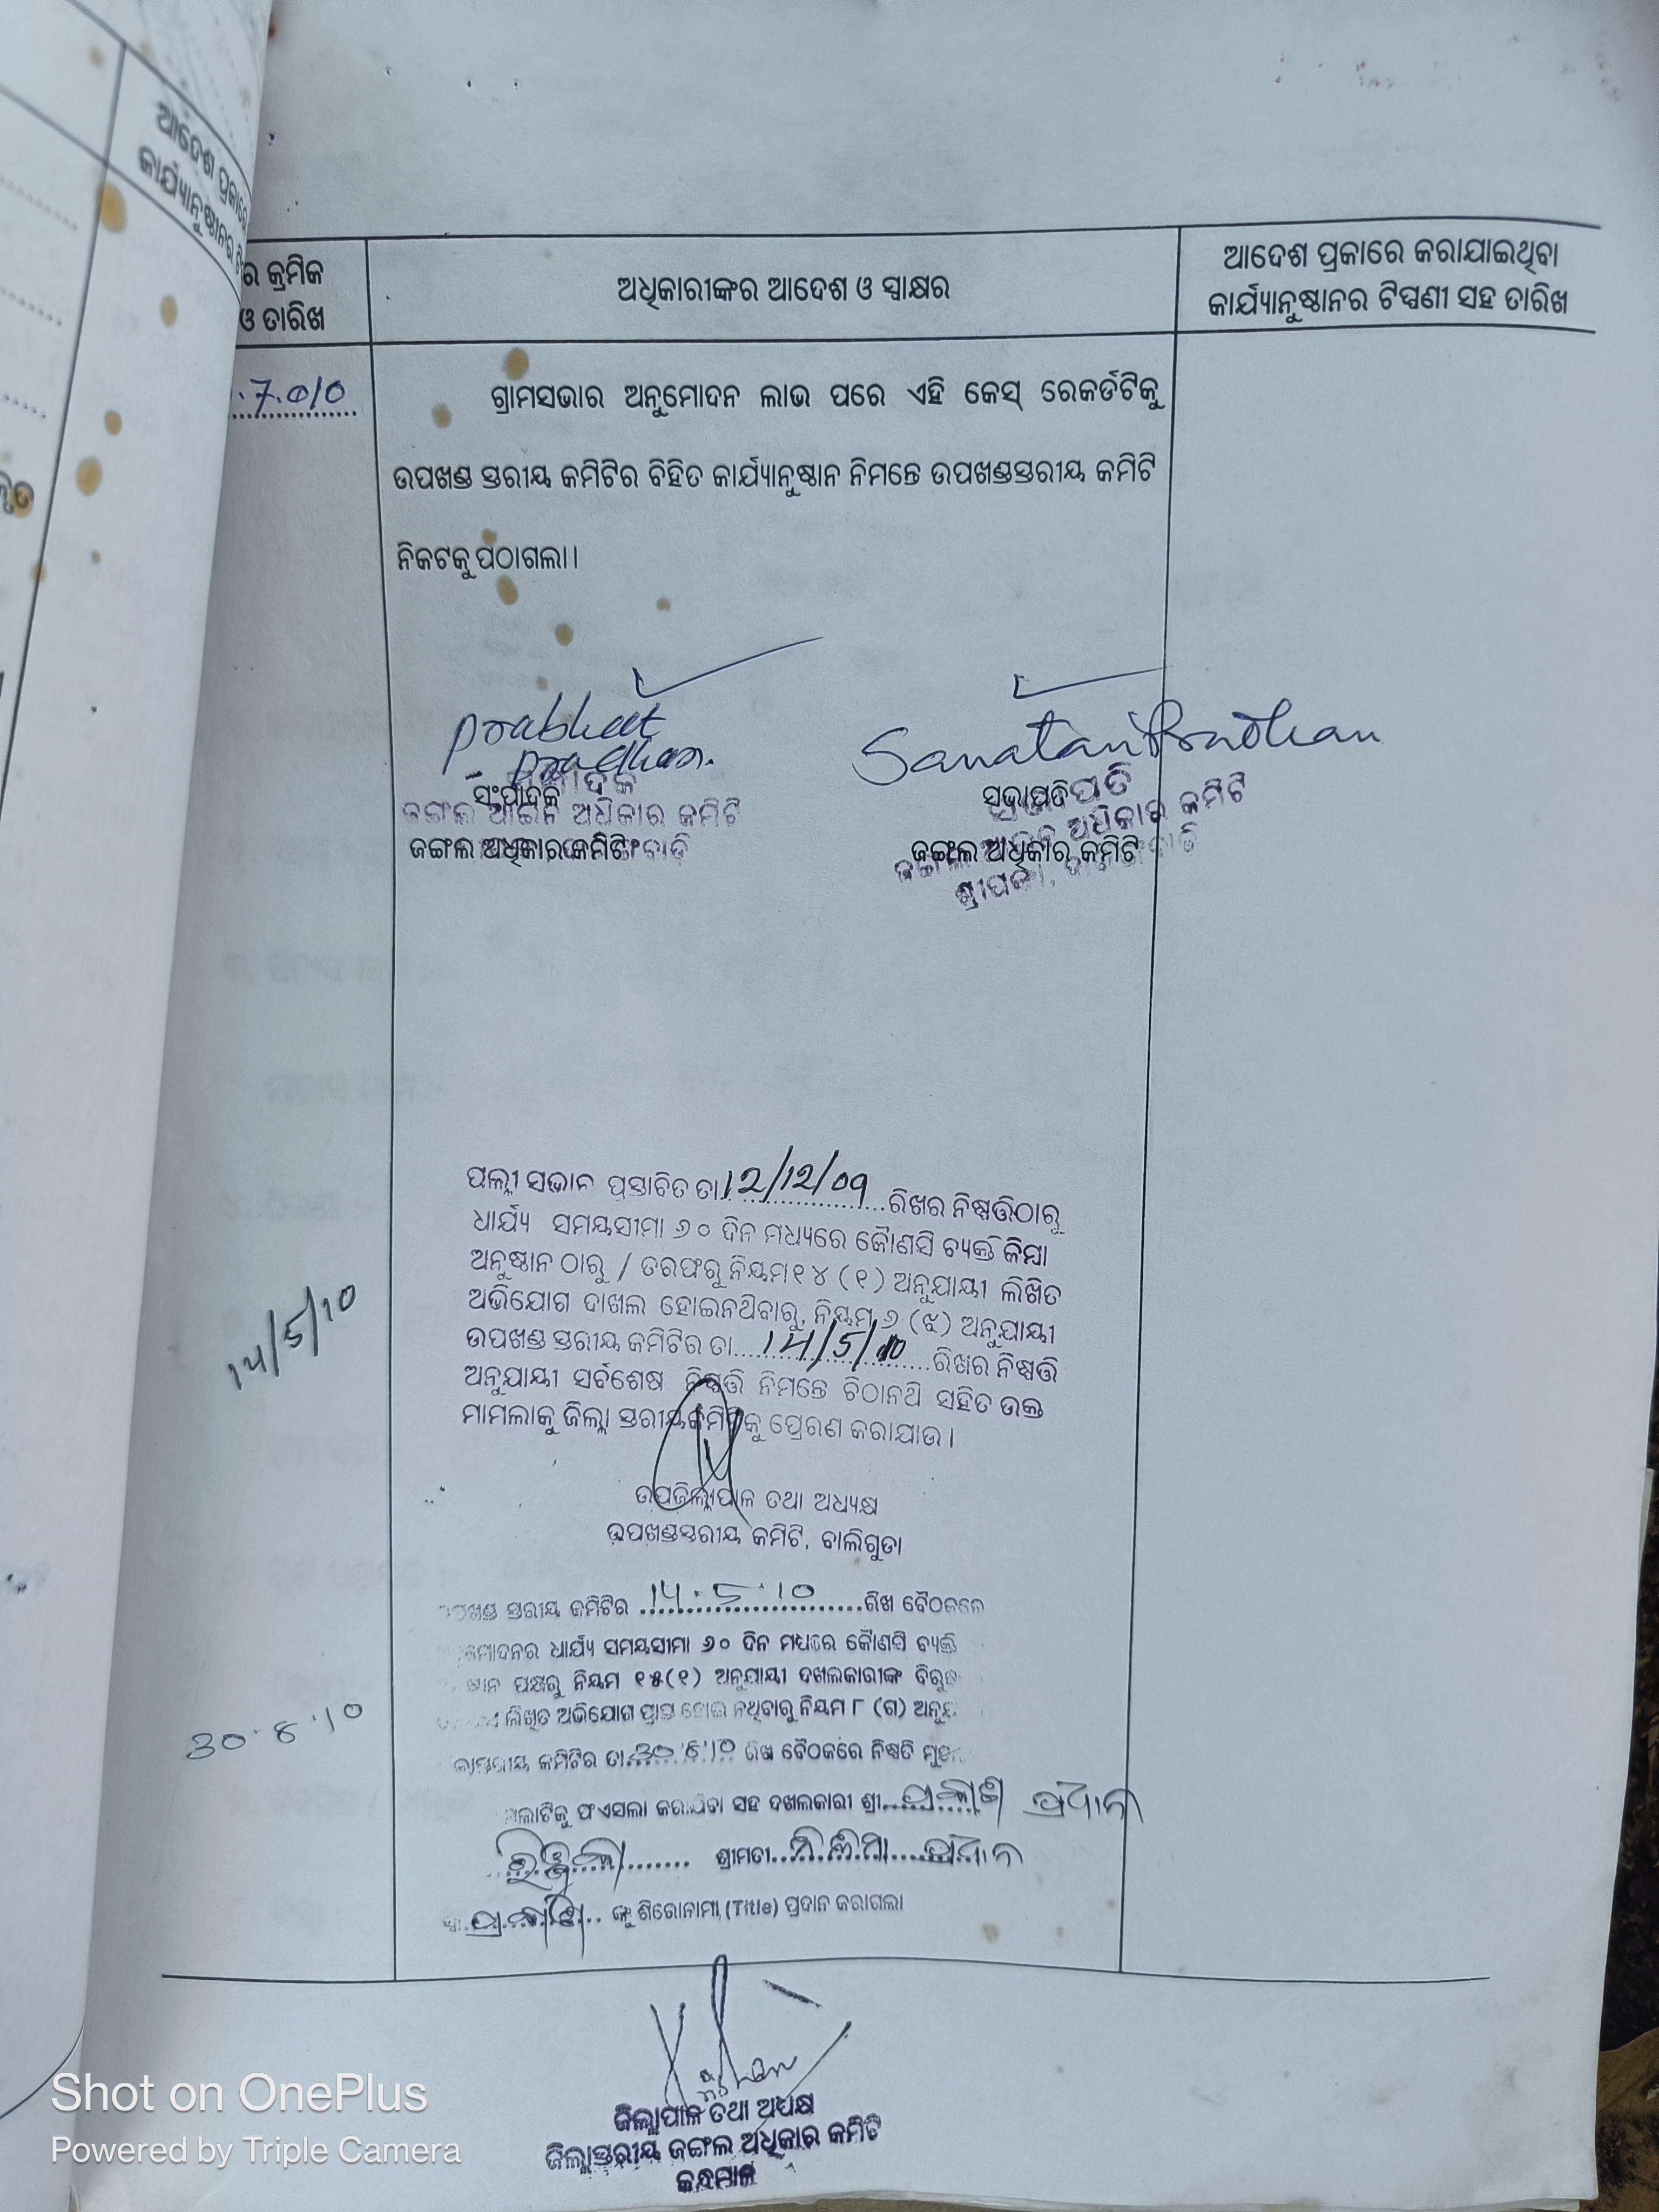 ଆଦେଶ ପ୍ରକାରେ
କାର୍ଯ୍ୟାନୁଷ୍ଠାନର ଟି
ର କ୍ରମିକ
ଓ ତାରିଖ
ଅଧିକାରୀଙ୍କର ଆଦେଶ ଓ ସ୍ୱାକ୍ଷର
ଆଦେଶ ପ୍ରକାରେ କରାଯାଇଥିବା
କାର୍ଯ୍ୟାନୁଷ୍ଠାନର ଟିପ୍ପଣୀ ସହ ତାରିଖ
.7.010
ଗ୍ରାମସଭାର ଅନୁମୋଦନ ଲାଭ ପରେ ଏହି କେସ୍ ରେକର୍ଡଟିକୁ
ଉପଖଣ୍ଡ ସ୍ତରୀୟ କମିଟିର ବିହିତ କାର୍ଯ୍ୟାନୁଷ୍ଠାନ ନିମନ୍ତେ ଉପଖଣ୍ଡସ୍ତରୀୟ କମିଟି
ନିକଟକୁ ପଠାଗଲା।
Prabhat Pradhan.
Sanatan Pradhan
ସଂପାଦକ
ଜଙ୍ଗଲ ଆଇନ ଅଧିକାର କମିଟି
ଜଙ୍ଗଲ ଅଧିକାର କମିଟି
ସଭାପତି
ଅଧିକାର କମିଟି
ଜଙ୍ଗଲ ଅଧିକାର କମିଟି
ପଲ୍ଲୀ ସଭାନ ପ୍ରସ୍ତାବିତ ତା 12/12/09 ରିଖର ନିଷ୍ପତ୍ତିଠାରୁ
ଧାର୍ଯ୍ୟ ସମୟସୀମା ୬୦ ଦିନ ମଧ୍ୟରେ କୌଣସି ବ୍ୟକ୍ତି କିମ୍ବା
ଅନୁଷ୍ଠାନ ଠାରୁ / ତରଫରୁ ନିୟମ ୧୪ (୧) ଅନୁଯାୟୀ ଲିଖିତ
ଅଭିଯୋଗ ଦାଖଲ ହୋଇନଥିବାରୁ, ନିୟମ ୬ (ଝ) ଅନୁଯାୟୀ
ଉପଖଣ୍ଡ ସ୍ତରୀୟ କମିଟିର ତା 14/5/10 ରିଖର ନିଷ୍ପତ୍ତି
ଅନୁଯାୟୀ ସର୍ବଶେଷ ନିଷ୍ପତ୍ତି ନିମନ୍ତେ ଚିଠାନଥି ସହିତ ଉକ୍ତ
ମାମଲାକୁ ଜିଲ୍ଲା ସ୍ତରୀୟ କମିଟିକୁ ପ୍ରେରଣ କରାଯାଉ।
14/5/10
ଉପଜିଲ୍ଲାପାଳ ତଥା ଅଧ୍ୟକ୍ଷ
ଉପଖଣ୍ଡସ୍ତରୀୟ କମିଟି, ବାଲିଗୁଡା
ସ୍ତରୀୟ କମିଟିର 14.5.10 ରିଖ ବୈଠକରେ
ଧାର୍ଯ୍ୟ ସମୟସୀମା ୬୦ ଦିନ ମଧ୍ୟରେ କୌଣସି ବ୍ୟକ୍ତି
ପକ୍ଷରୁ ନିୟମ ୧୫(୧) ଅନୁଯାୟୀ ଦଖଲକାରୀଙ୍କ
ଲିଖିତ ଅଭିଯୋଗ ପ୍ରାପ୍ତ ହୋଇ ନଥିବାରୁ ନିୟମ ୮ (ଗ)
30.8.10
କମିଟିର ତା 30.8.10 ରିଖ ବୈଠକରେ ନିଷ୍ପତି
ଫଏସଲା କରାଯିବା ସହ ଦଖଲକାରୀ ଶ୍ରୀ ପ୍ରକାଶ ପ୍ରଧାନ
ଶ୍ରୀମତୀ ପ୍ରଧାନ
ପ୍ରକାଶ ଙ୍କୁ ଶିରୋନାମା (Title) ପ୍ରଦାନ କରାଗଲା
ଜିଲ୍ଲାପାଳ ତଥା ଅଧ୍ୟକ୍ଷ
ଜିଲ୍ଲାସ୍ତରୀୟ ଜଙ୍ଗଲ ଅଧିକାର କମିଟି
କନ୍ଧମାଳ
Shot on OnePlus
Powered by Triple Camera